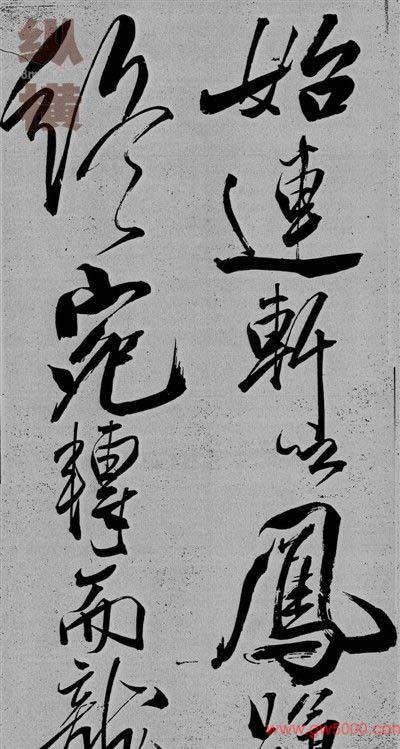 始連軒以鳳
終宛轉而龍
纵横
www.gw5000.com